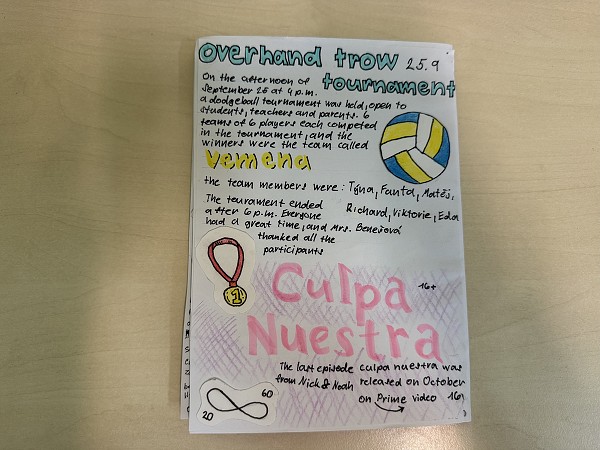 overhand trow 25.9
tournament
On the afternoon of
September 25 at 4 p.m.
a dodgeball tournament was held, open to
students, teachers and parents. 6
teams of 6 players each competed
in the tournament, and the
winners were the team called
Vemena
the team members were: Týna, Fanta, Matěj,
Richard, Viktorie, Eda
The tourament ended
after 6 p.m. Everyone
had a great time, and Mrs. Benešová
thanked all the
participants
1
Culpa 16+
Nuestra
The last episode culpa nuestra was
from Nick & Noah released on October
on Prime video 16
20
60